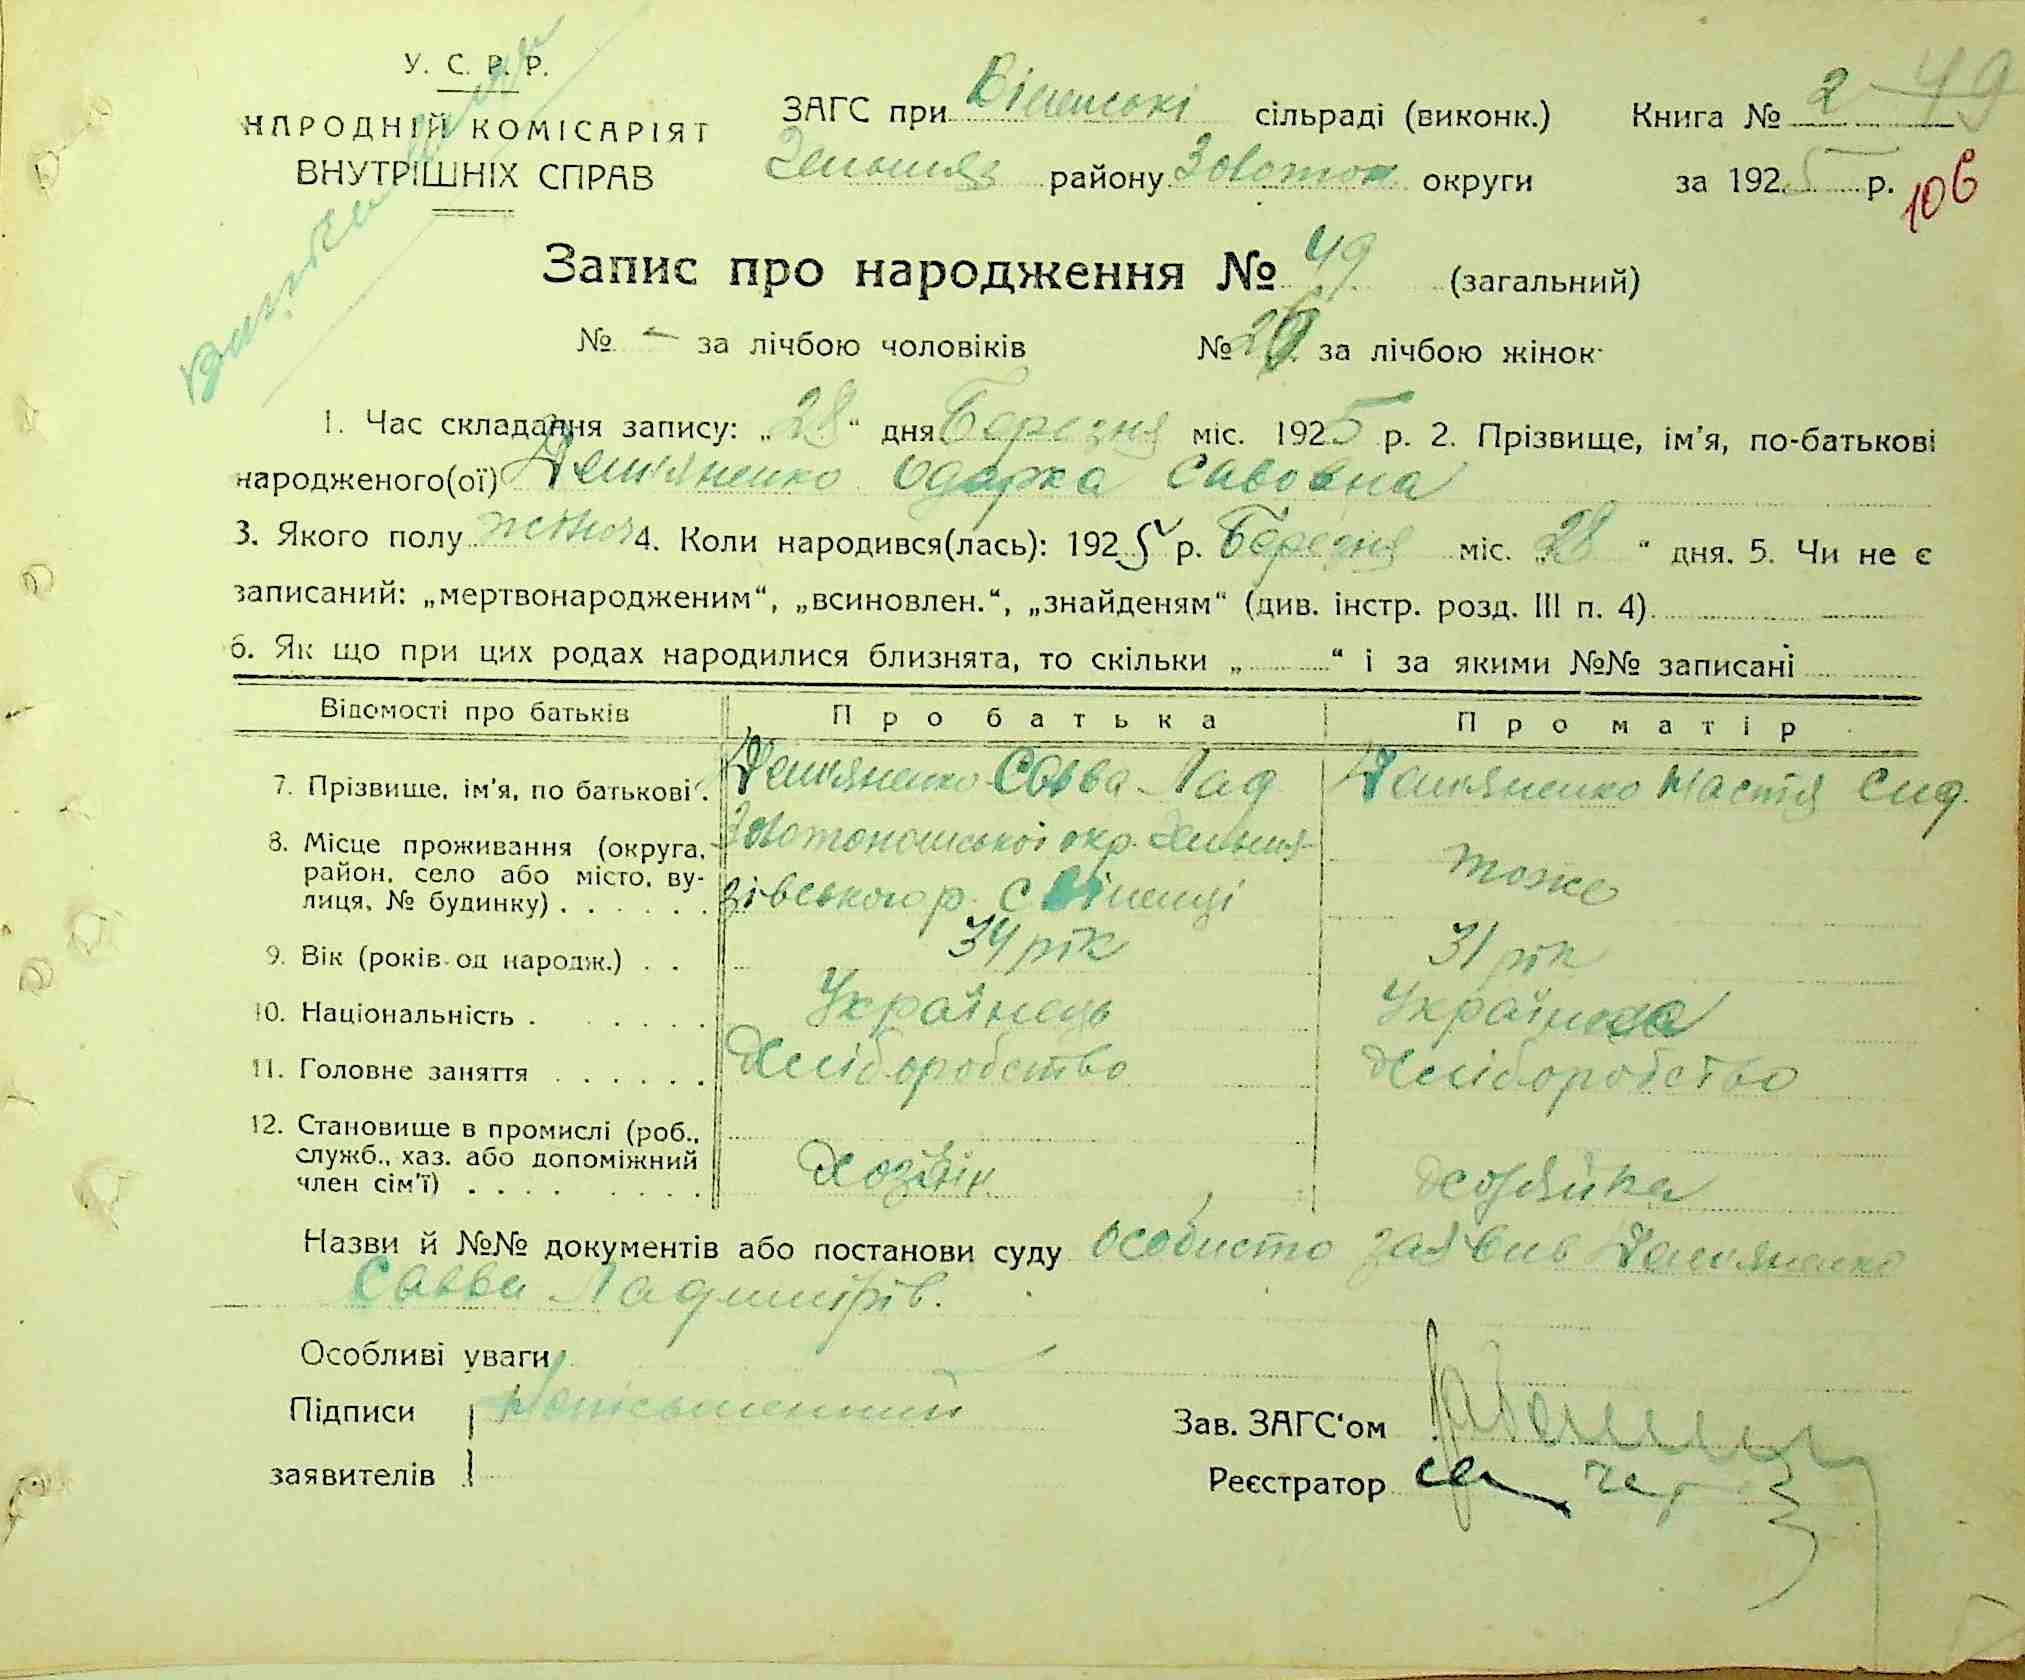 У. С. Р. Р.
НАРОДНІЙ КОМІСАРІЯТ
ВНУТРІШНІХ СПРАВ
ЗАГС при сільраді (виконк.) Книга № 2 49
району Золотон округи за 1925 р. 106
Запис про народження № 49 (загальний)
№ - за лічбою чоловіків № за лічбою жінок
1. Час складання запису: „28“ дня Березня міс. 1925 р. 2. Прізвище, ім'я, по-батькові
народженого(ої) Дем'яненко Одарка Савовна
3. Якого полу жіноч 4. Коли народився(лась): 1925 р. Березня міс. „28“ дня. 5. Чи не є
записаний: „мертвонародженим“, „всиновлен.“, „знайденям“ (див. інстр. розд. III п. 4)
6. Як що при цих родах народилися близнята, то скільки „ “ і за якими №№ записані
Відомості про батьків Про батька Про матір
7. Прізвище, ім'я, по батькові. Дем'яненко Савва Лад Дем'яненко Настя Сид.
8. Місце проживання (округа, район, село або місто, вулиця, № будинку) Золотоношської окр. Хельмязівського р. с Віненці тоже
9. Вік (років од народж.) 34 рік 31 рік
10. Національність Українець Українка
11. Головне заняття Хліборобство Хліборобство
12. Становище в промислі (роб., служб., хаз. або допоміжний член сім'ї) Хозяїн Хозяйка
Назви й №№ документів або постанови суду особисто заявив Дем'яненко
Савва Ладимирів.
Особливі уваги
Підписи Неписьменний Зав. ЗАГС'ом
заявителів Реєстратор